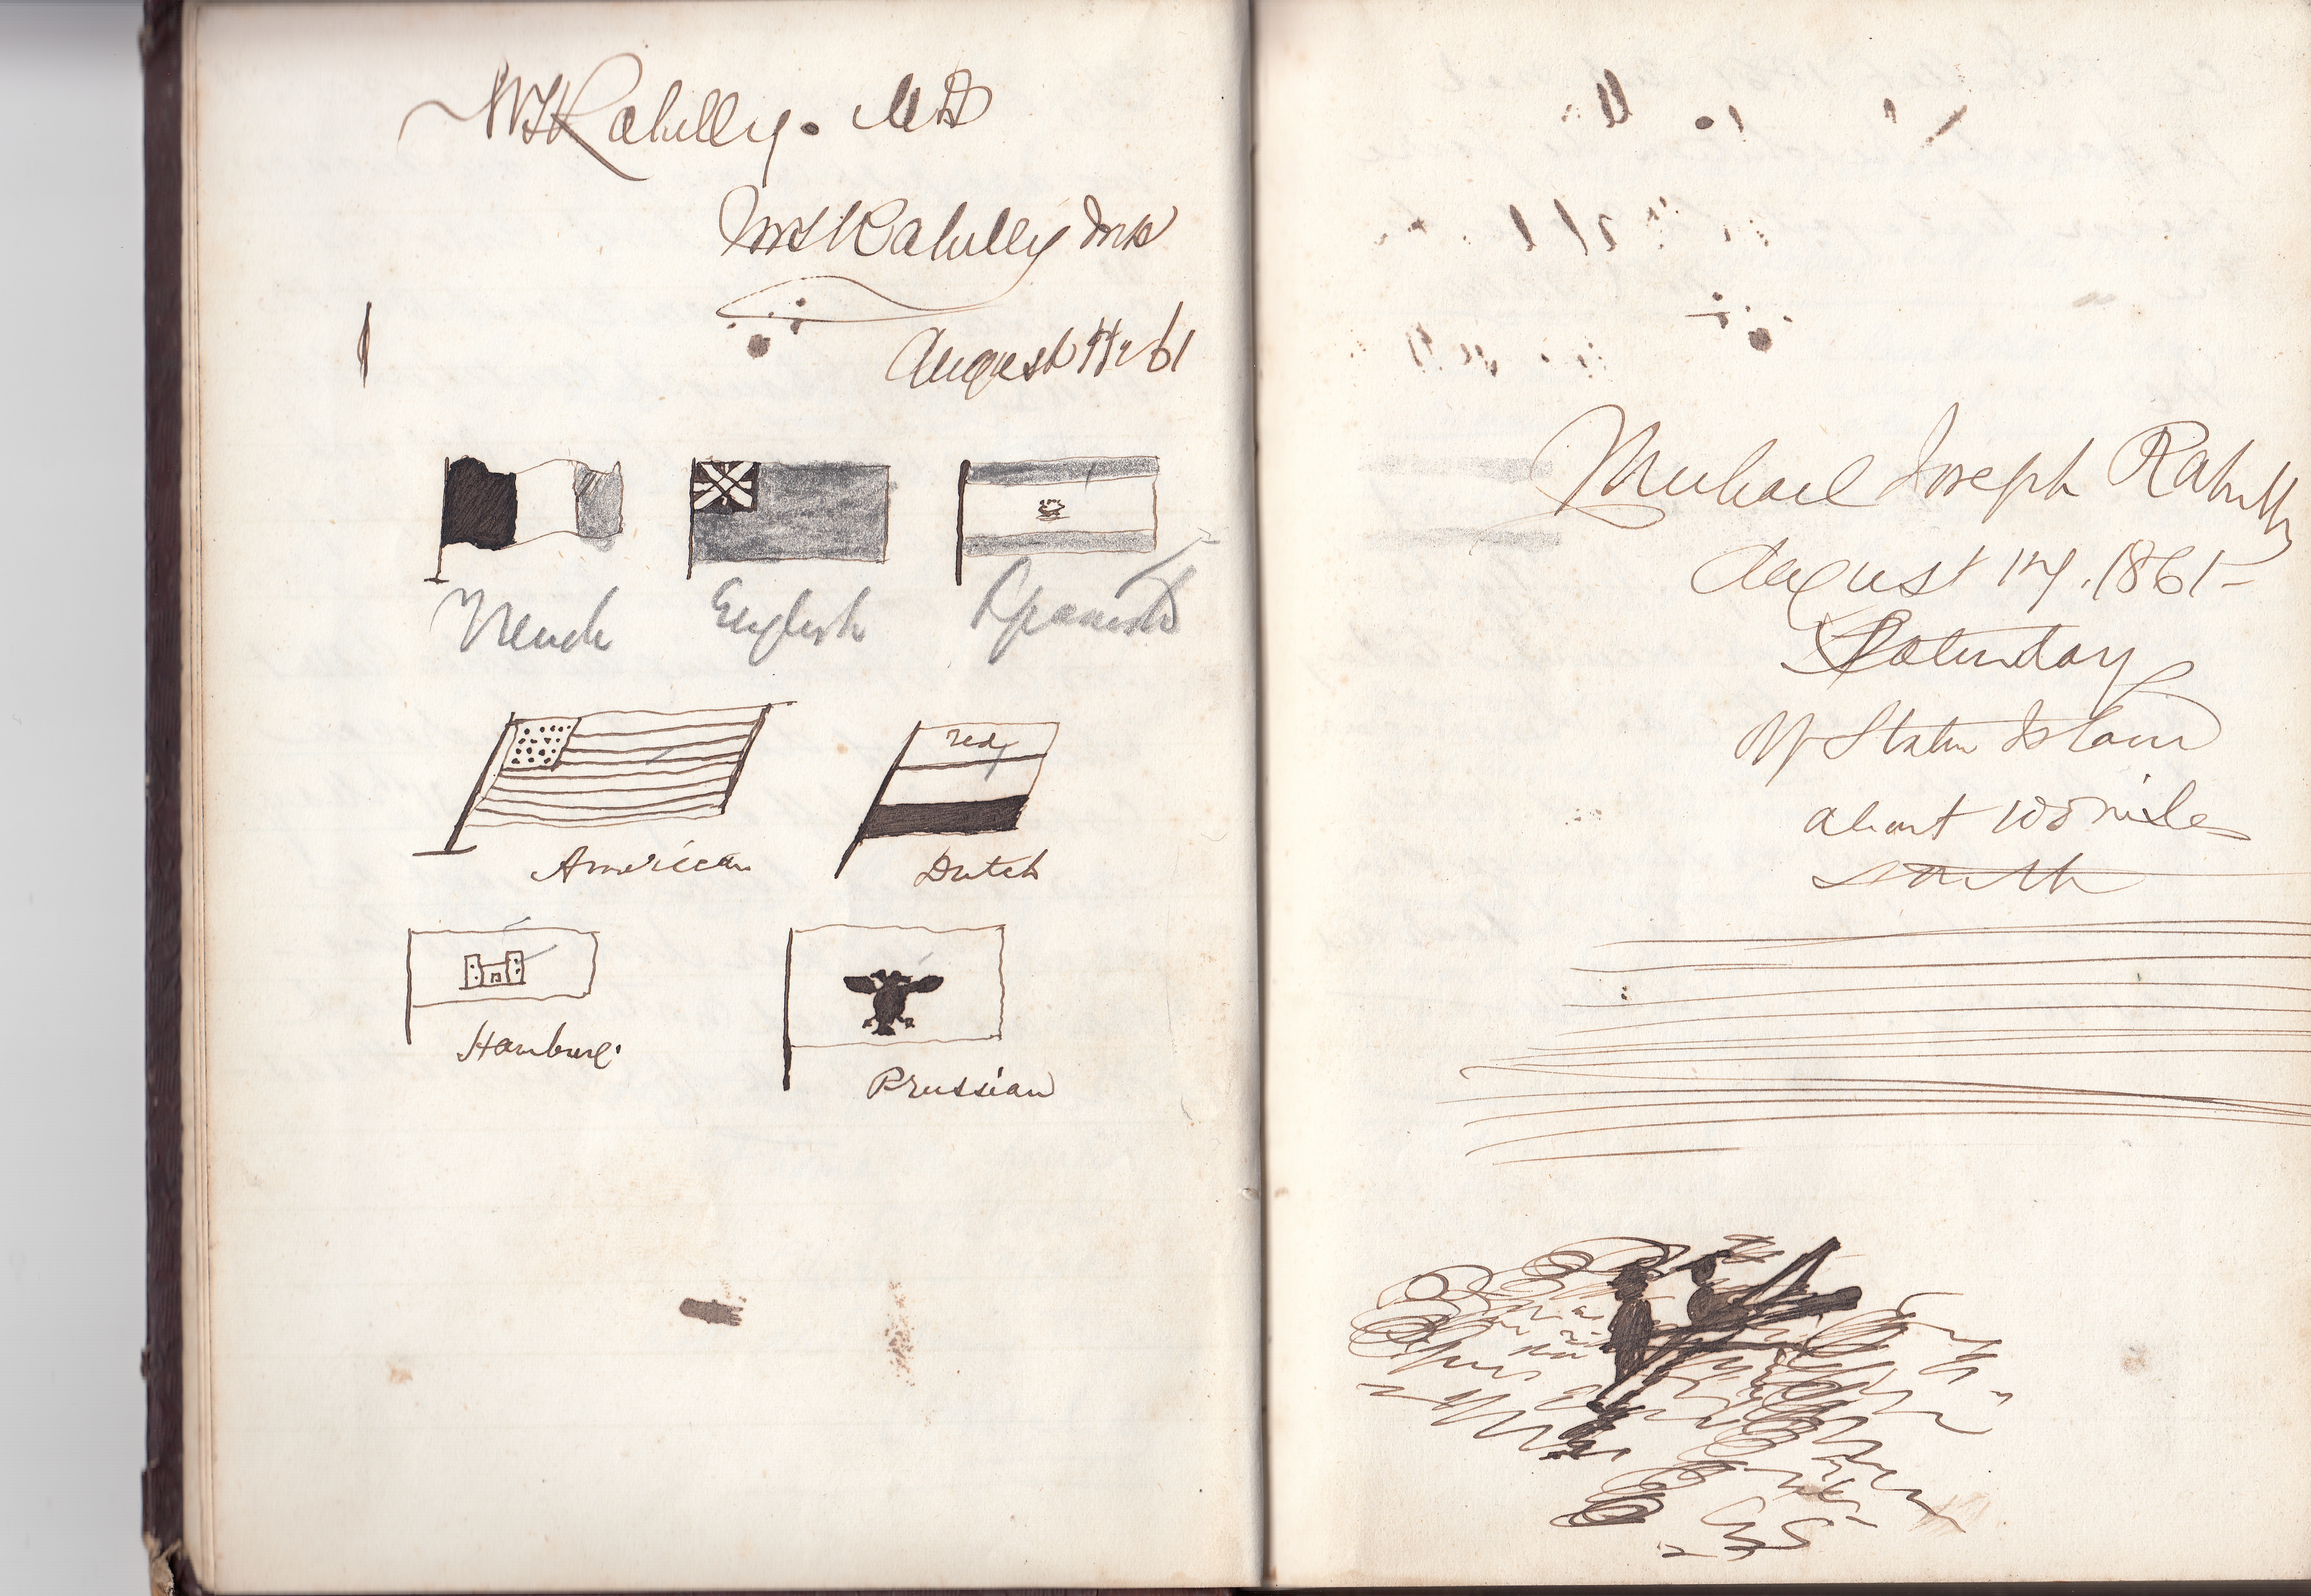 Rahilly. MD
Rahilly
August 61
French English Spanish
red
American Dutch
Hamburg.
Prussian
Michael Joseph Rahilly
August 17. 1861-
Saturday
Staten Island
about 100 miles
south